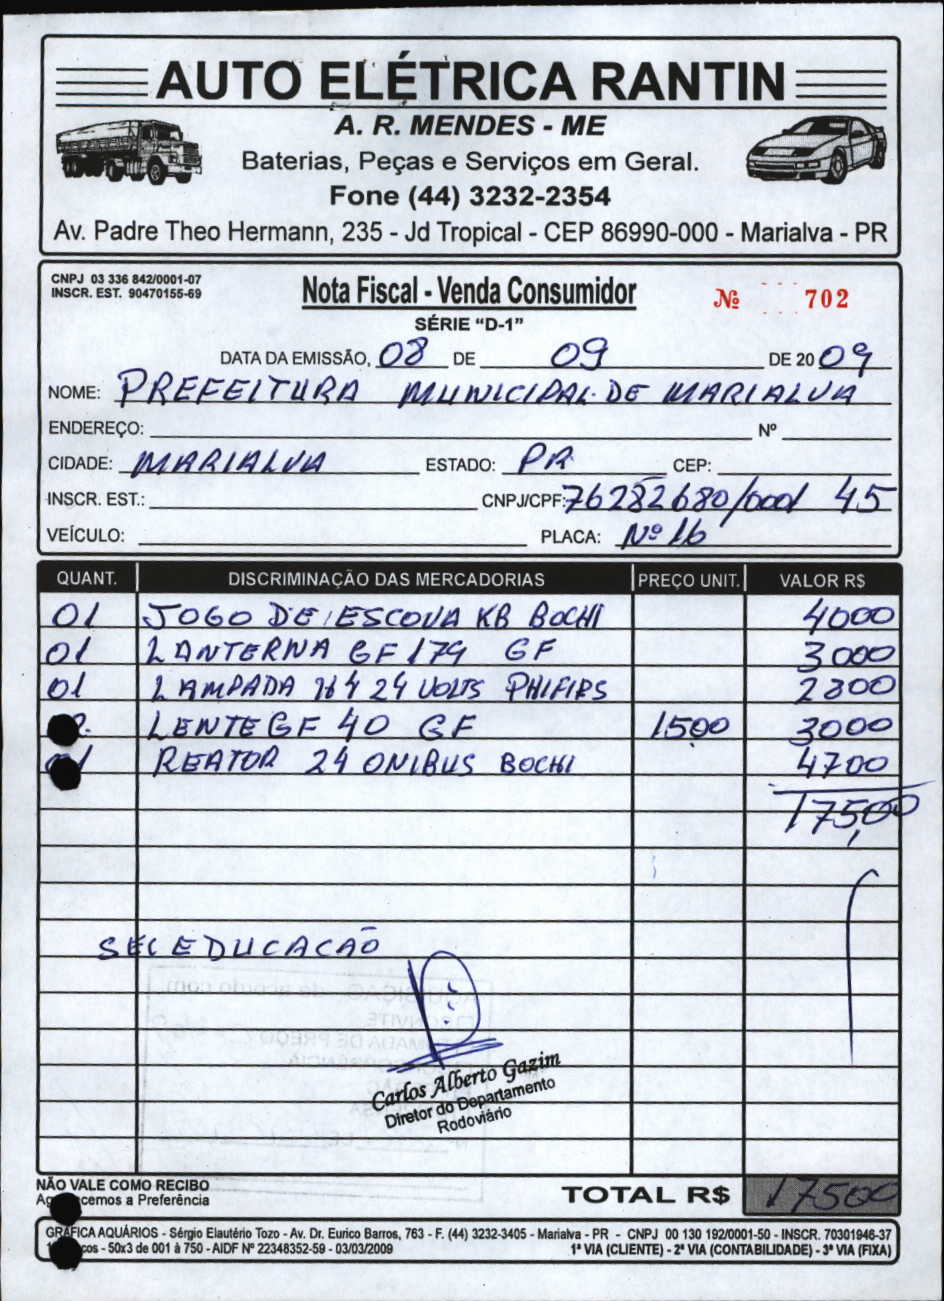 AUTO ELÉTRICA RANTIN
A. R. MENDES - ME
Baterias, Peças e Serviços em Geral.
Fone (44) 3232-2354
Av. Padre Theo Hermann, 235 - Jd Tropical - CEP 86990-000 - Marialva - PR
CNPJ 03 336 842/0001-07
INSCR. EST. 90470155-69
Nota Fiscal - Venda Consumidor
Nº 702
SÉRIE "D-1"
DATA DA EMISSÃO, 08 DE 09 DE 2009
NOME: PREFEITURA MUNICIPAL DE MARIALVA
ENDEREÇO: Nº
CIDADE: MARIALVA ESTADO: PR CEP:
INSCR. EST.: CNPJ/CPF: 76282680/0001 45
VEÍCULO: PLACA: Nº 16
QUANT. DISCRIMINAÇÃO DAS MERCADORIAS PREÇO UNIT. VALOR R$
01 JOGO DE ESCOVA KB BOCHI 4000
01 LANTERNA GF 179 GF 3000
01 LAMPADA 24 VOLTS 2800
LENTE GF 40 GF 1500 3000
REATOR 24 ONIBUS BOCHI 4700
175,00
SEC EDUCACAO
Carlos Alberto Gazim
Diretor do Departamento
Rodoviário
NÃO VALE COMO RECIBO
TOTAL R$ 17500
a Preferência
GRÁFICA AQUÁRIOS - Sérgio Elautério Tozo - Av. Dr. Eurico Barros, 763 - F. (44) 3232-3405 - Marialva - PR - CNPJ 00 130 192/0001-50 - INSCR. 70301946-37
- 50x3 de 001 à 750 - AIDF Nº 22348352-59 - 03/03/2009 1ª VIA (CLIENTE) - 2ª VIA (CONTABILIDADE) - 3ª VIA (FIXA)